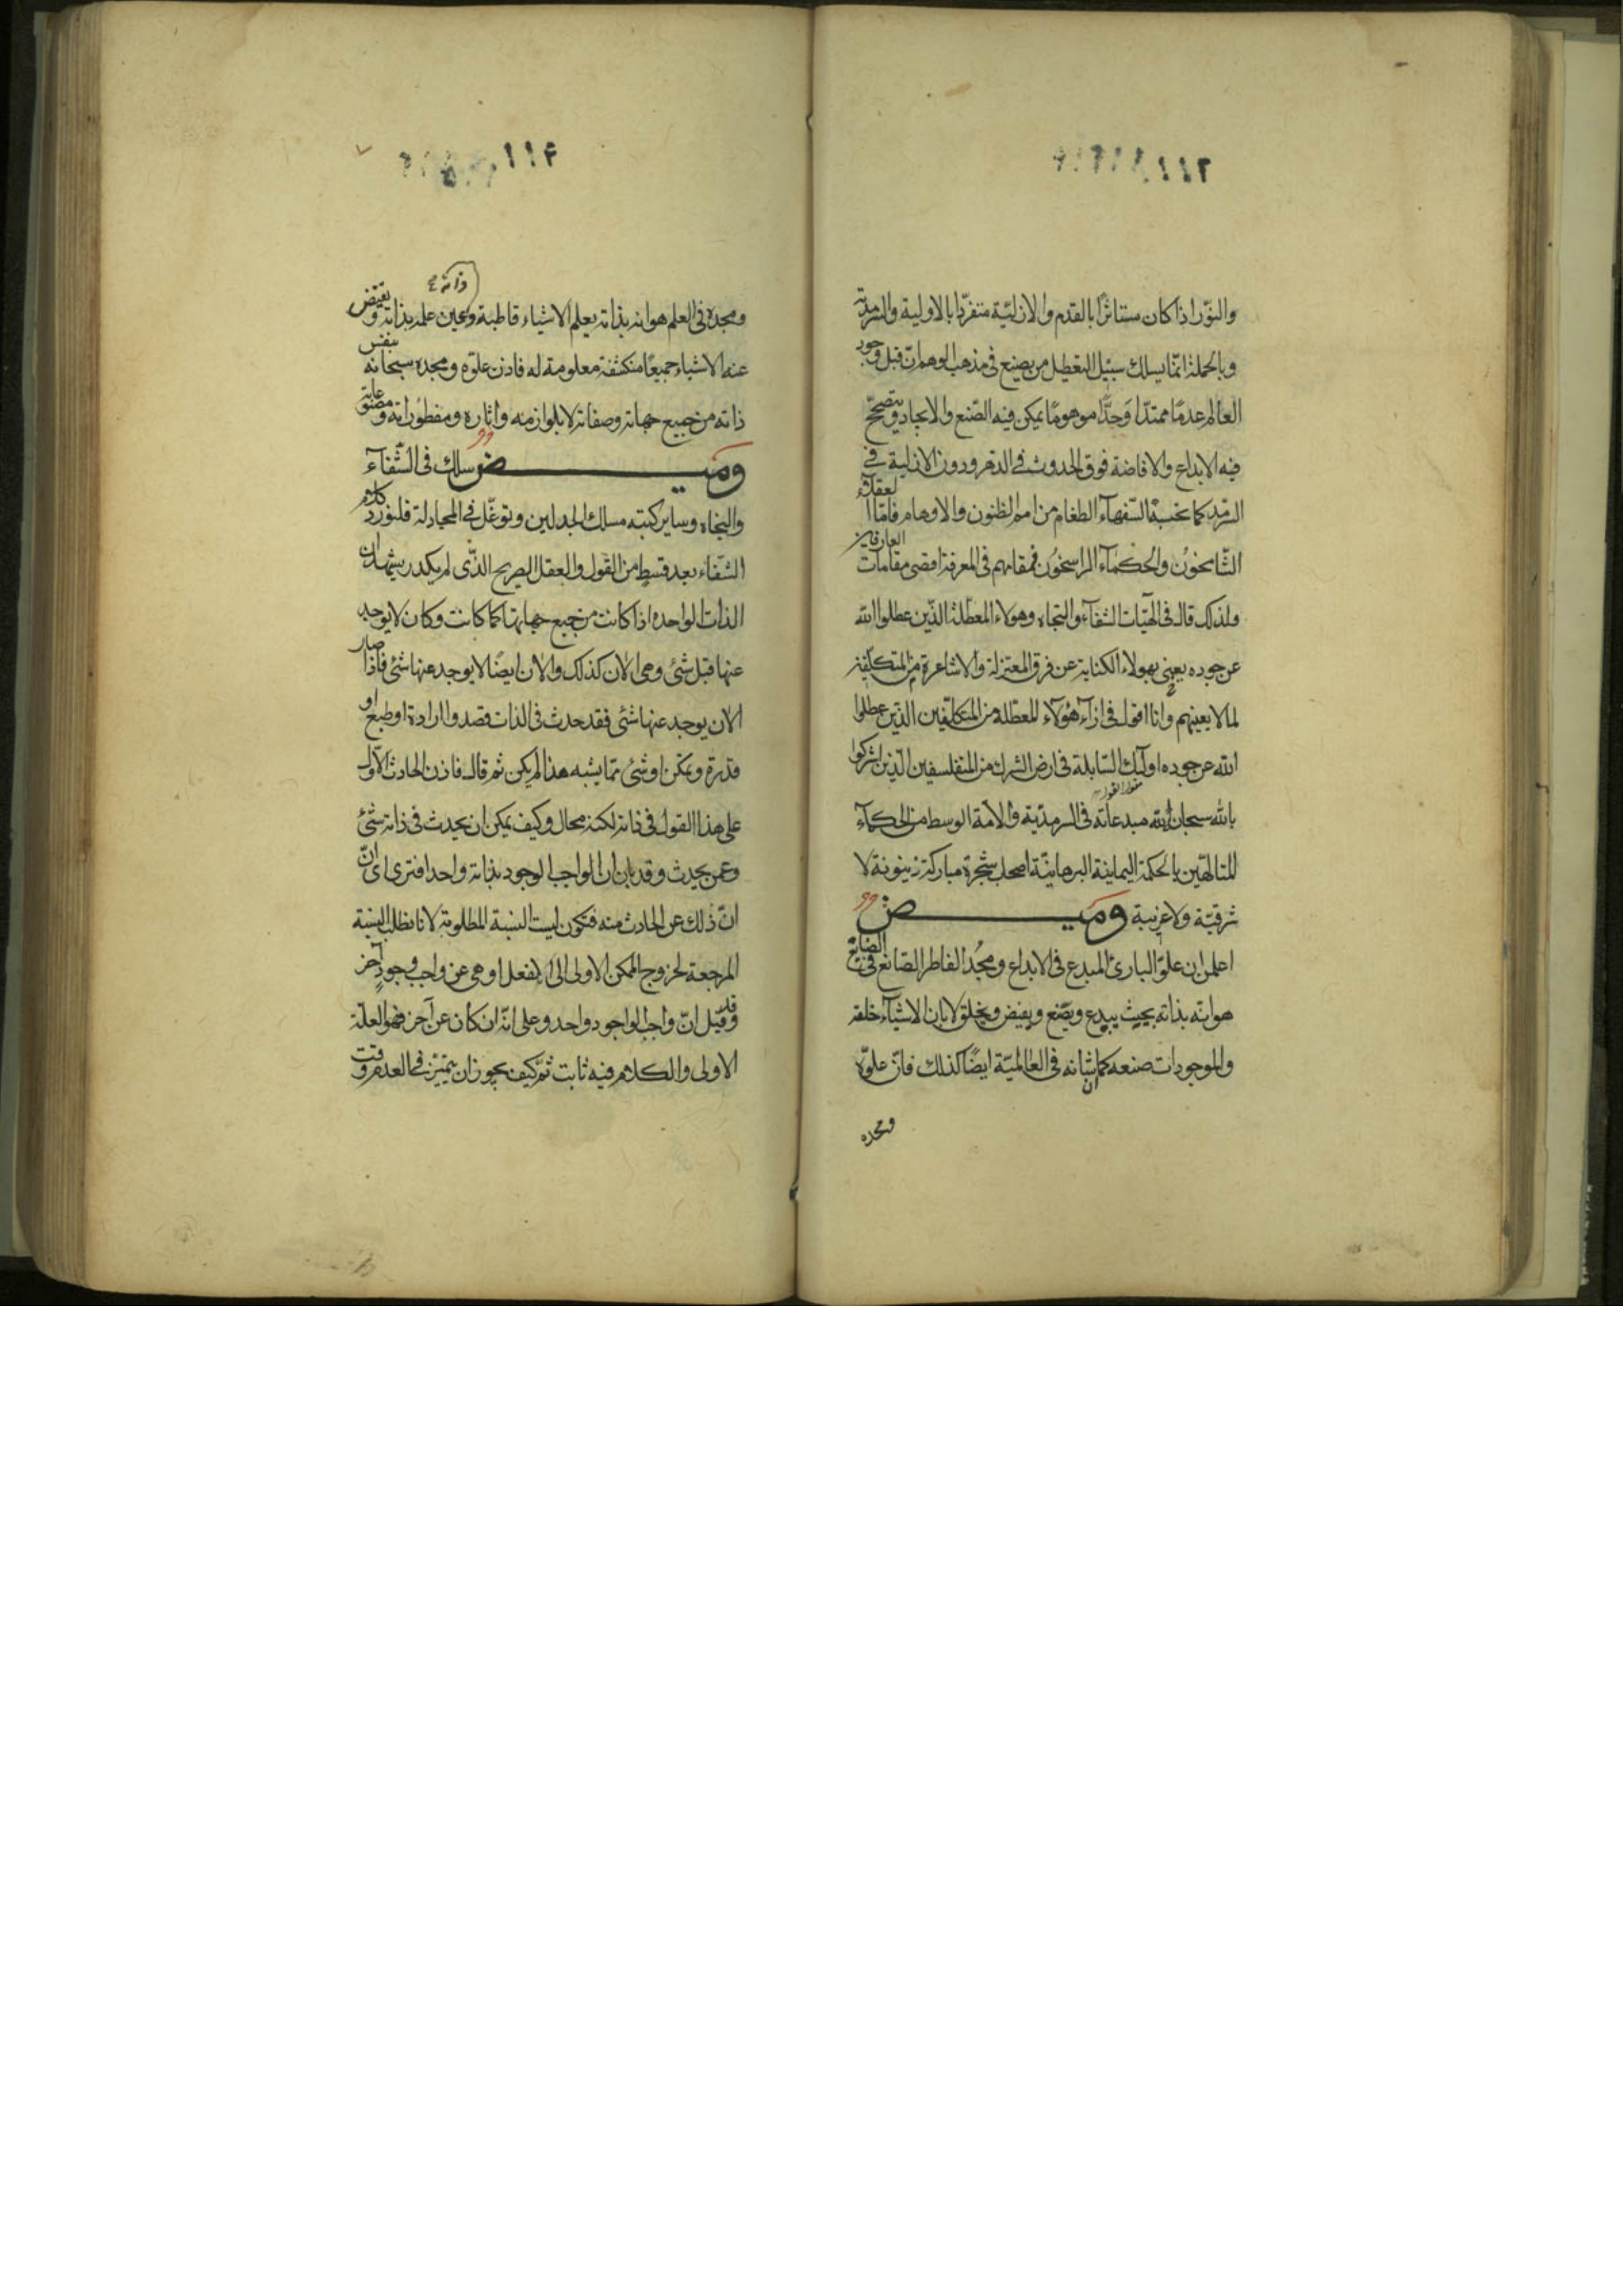 والنور اذا كان مستاثرًا بالقدم والازلية متفردا بالاولية والسرمدية
وبالجملة انما يسلك سبيل التعطيل من يضع في مذهب الوهم ان قبل وجود
العالم عدمًا ممتدّا وحدًّا موهومًا يمكن فيه الصّنع والايجاد ويتصحّح
فيه الابداع والافاضة فوق الحدوث في الدهر ودون الازلية في
السرمد كما تحسبه السّفهاء الطغام من امم الظنون والاوهام فامّا العقلاء
الشّامخون والحكماء الراسخون فمقامهم في المعرفة اقصى مقامات العارفين
ولذلك قال في الهيّات الشفاء والنجاه وهولاء المعطلة الذّين عطلوا الله
عن جوده يعني بهولاء الكناية عن فرق المعتزلة والاشاعرة من المتكلفين
لما لا يعنيهم وانا اقول في ازاء هؤلاء المعطّلة من المتكلّفين الذين عطلوا
الله عن جوده اولئك السّابلة في ارض الشرك من المتفلسفين الّذين اشركوا
بالله سبحان الله مبدعاته في السرمديّة والامة الوسط من الحكماء
المتالهّين بالحكمة اليمانية البرهانيّة اصحاب شجرة مباركة زيتونة لا
شرقيّة ولا غربية وميض
اعلمن ان علوّ البارئ المبدع في الابداع ومجد الفاطر الصّانع في الصّنايع
هو انّه بذاته بحيث يبدع ويصنع ويفيض ويخلق لا بان الاشياء خلقه
والموجودات صنعه كما ان شانه في العالميّة ايضًا كذلك فان علوّه
ومجده
ومجده في العلم هو انه بذاته يعلم الاشياء قاطبة وعين علمه بذاته وتفيض
ذاته
عنه الاشياء جميعًا منكشفة معلومة له فاذن علوّه ومجده سبحانه بنفس
ذاته من جميع جهاته وصفاته لا بلوازمه واثاره ومفطوراته ومصنوعاته
وميض سلك في الشّفاء
والنجاه وساير كتبه مسلك الجدليين وتوغّل في المجادلة فلنورد كلام
الشفاء بعد قسط من القول والعقل الصريح الذّي لم يكدر يشهد ان
الذات الواحده اذا كانت من جميع جهاتها كما كانت وكان لا يوجد
عنها قبل شئ وهي الان كذلك والان ايضًا لا يوجد عنها شئ فاذا صار
الان يوجد عنها شئ فقد حدث في الذات قصد وا ارادة او طبع او
قدرة وتمكن او شئ ممّا يشبه هذا لم يكن ثم قال فاذن الحادث الاول
على هذا القول في ذاته لكنه محال وكيف يمكن ان يحدث في ذاته شئ
وعمن يحدث وقد بان ان الواجب الوجود بذاته واحد افترى ان
انّ ذلك عن الحادث منه فتكون ليست النسبة المطلوبة لانا نطلب النسبة
المرجعة لخروج الممكن الاولى الى الفعل او هي عن واجب وجود آخر
وقد قيل انّ واجب الواجود واحد وعلى انّه ان كان عن آخر فهو العلة
الاولى والكلام فيه ثابت ثم كيف يجوز ان يتميّز في العدم وقت